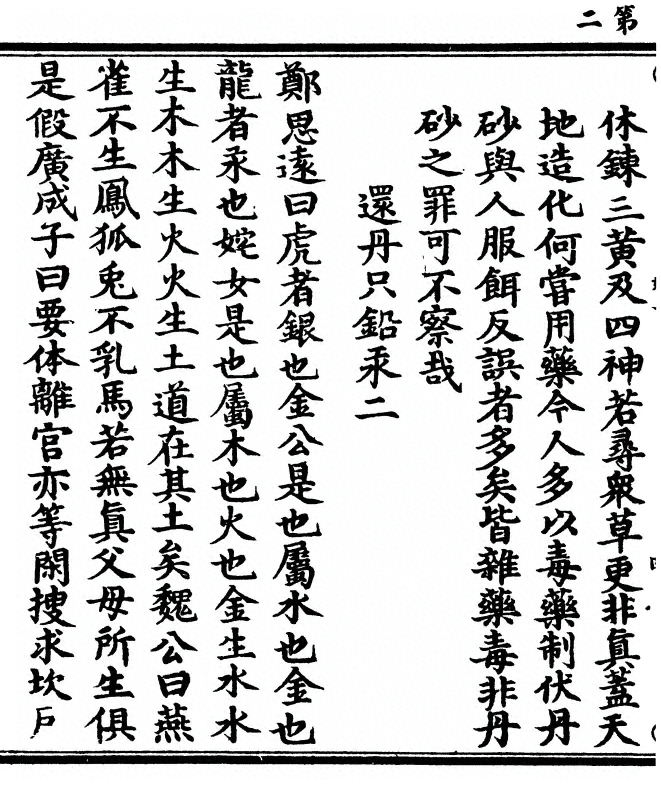 第二
休鍊三黃及四神若尋衆草更非眞蓋天
地造化何嘗用藥今人多以毒藥制伏丹
砂與人服餌反誤者多矣皆雜藥毒非丹
砂之罪可不察哉
還丹只鉛汞二
鄭思遠曰虎者銀也金公是也屬水也金也
龍者汞也姹女是也屬木也火也金生水水
生木木生火火生土道在其土矣魏公曰燕
雀不生鳳狐兎不乳馬若無眞父母所生俱
是假廣成子曰要体離宮亦等閑搜求坎戶